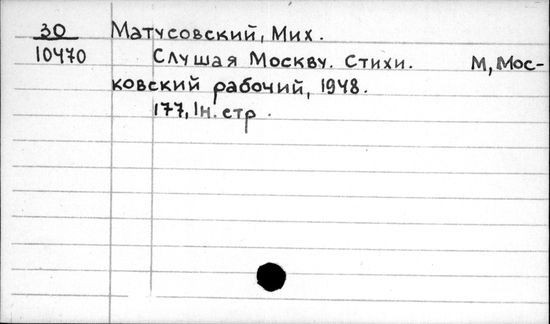 30 Матусовский, Мих.
10470 Слушая Москву. Стихи. М, Мос-
ковский рабочий, 1948.
177, 1н. стр.